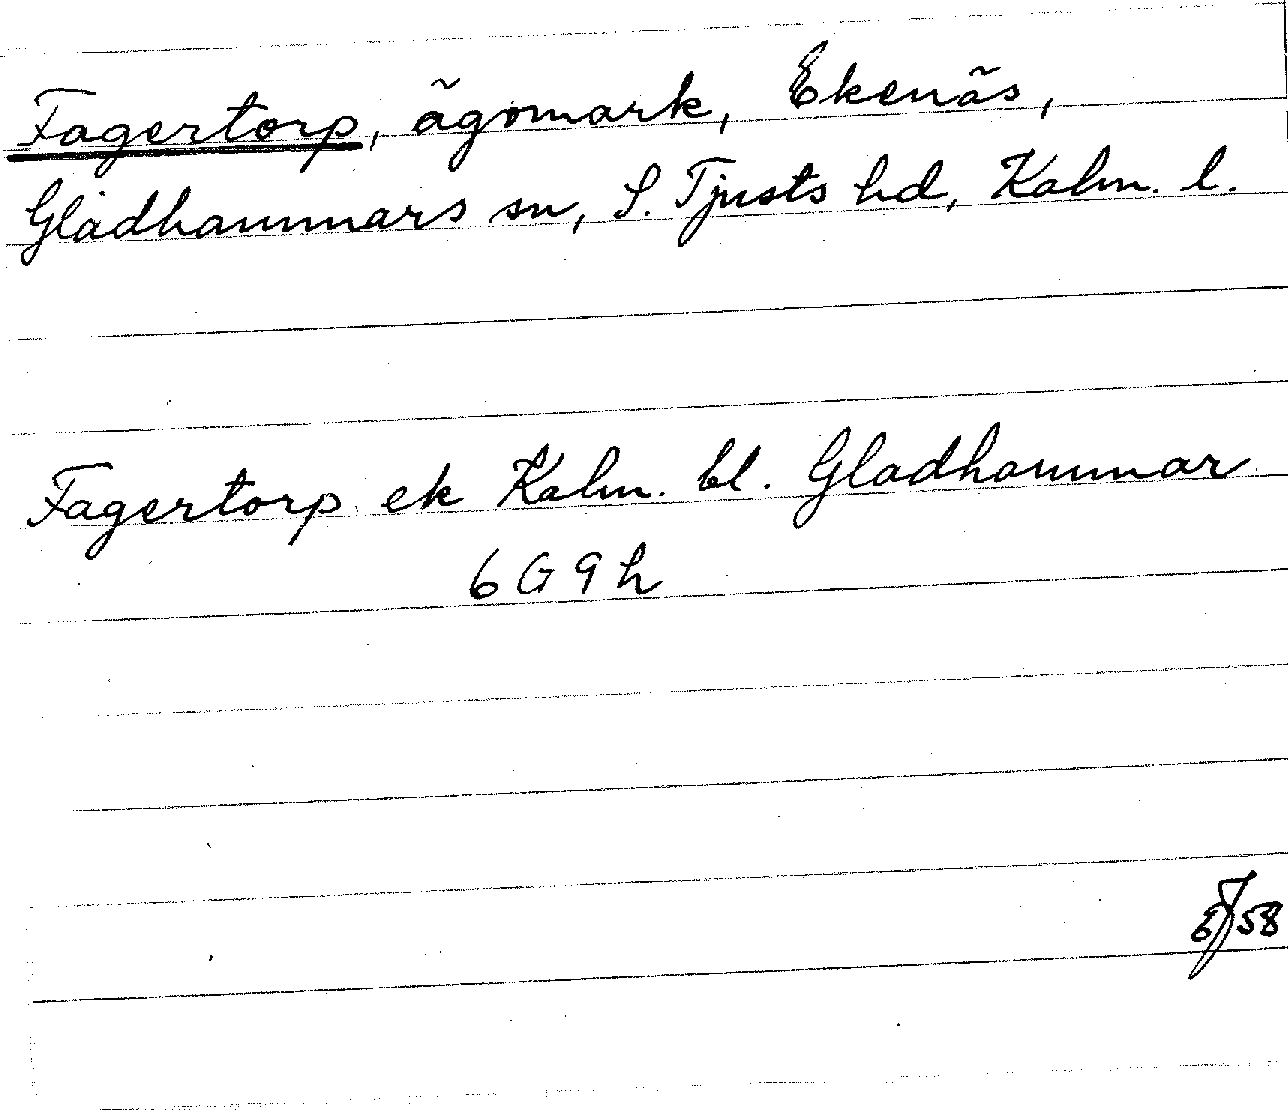 Fagertorp, ägomark, Ekenäs,
Gladhammars sn, S. Tjusts hd, Kalm. l.
Fagertorp ek Kalm. bl. Gladhammar
6 G 9 h
58